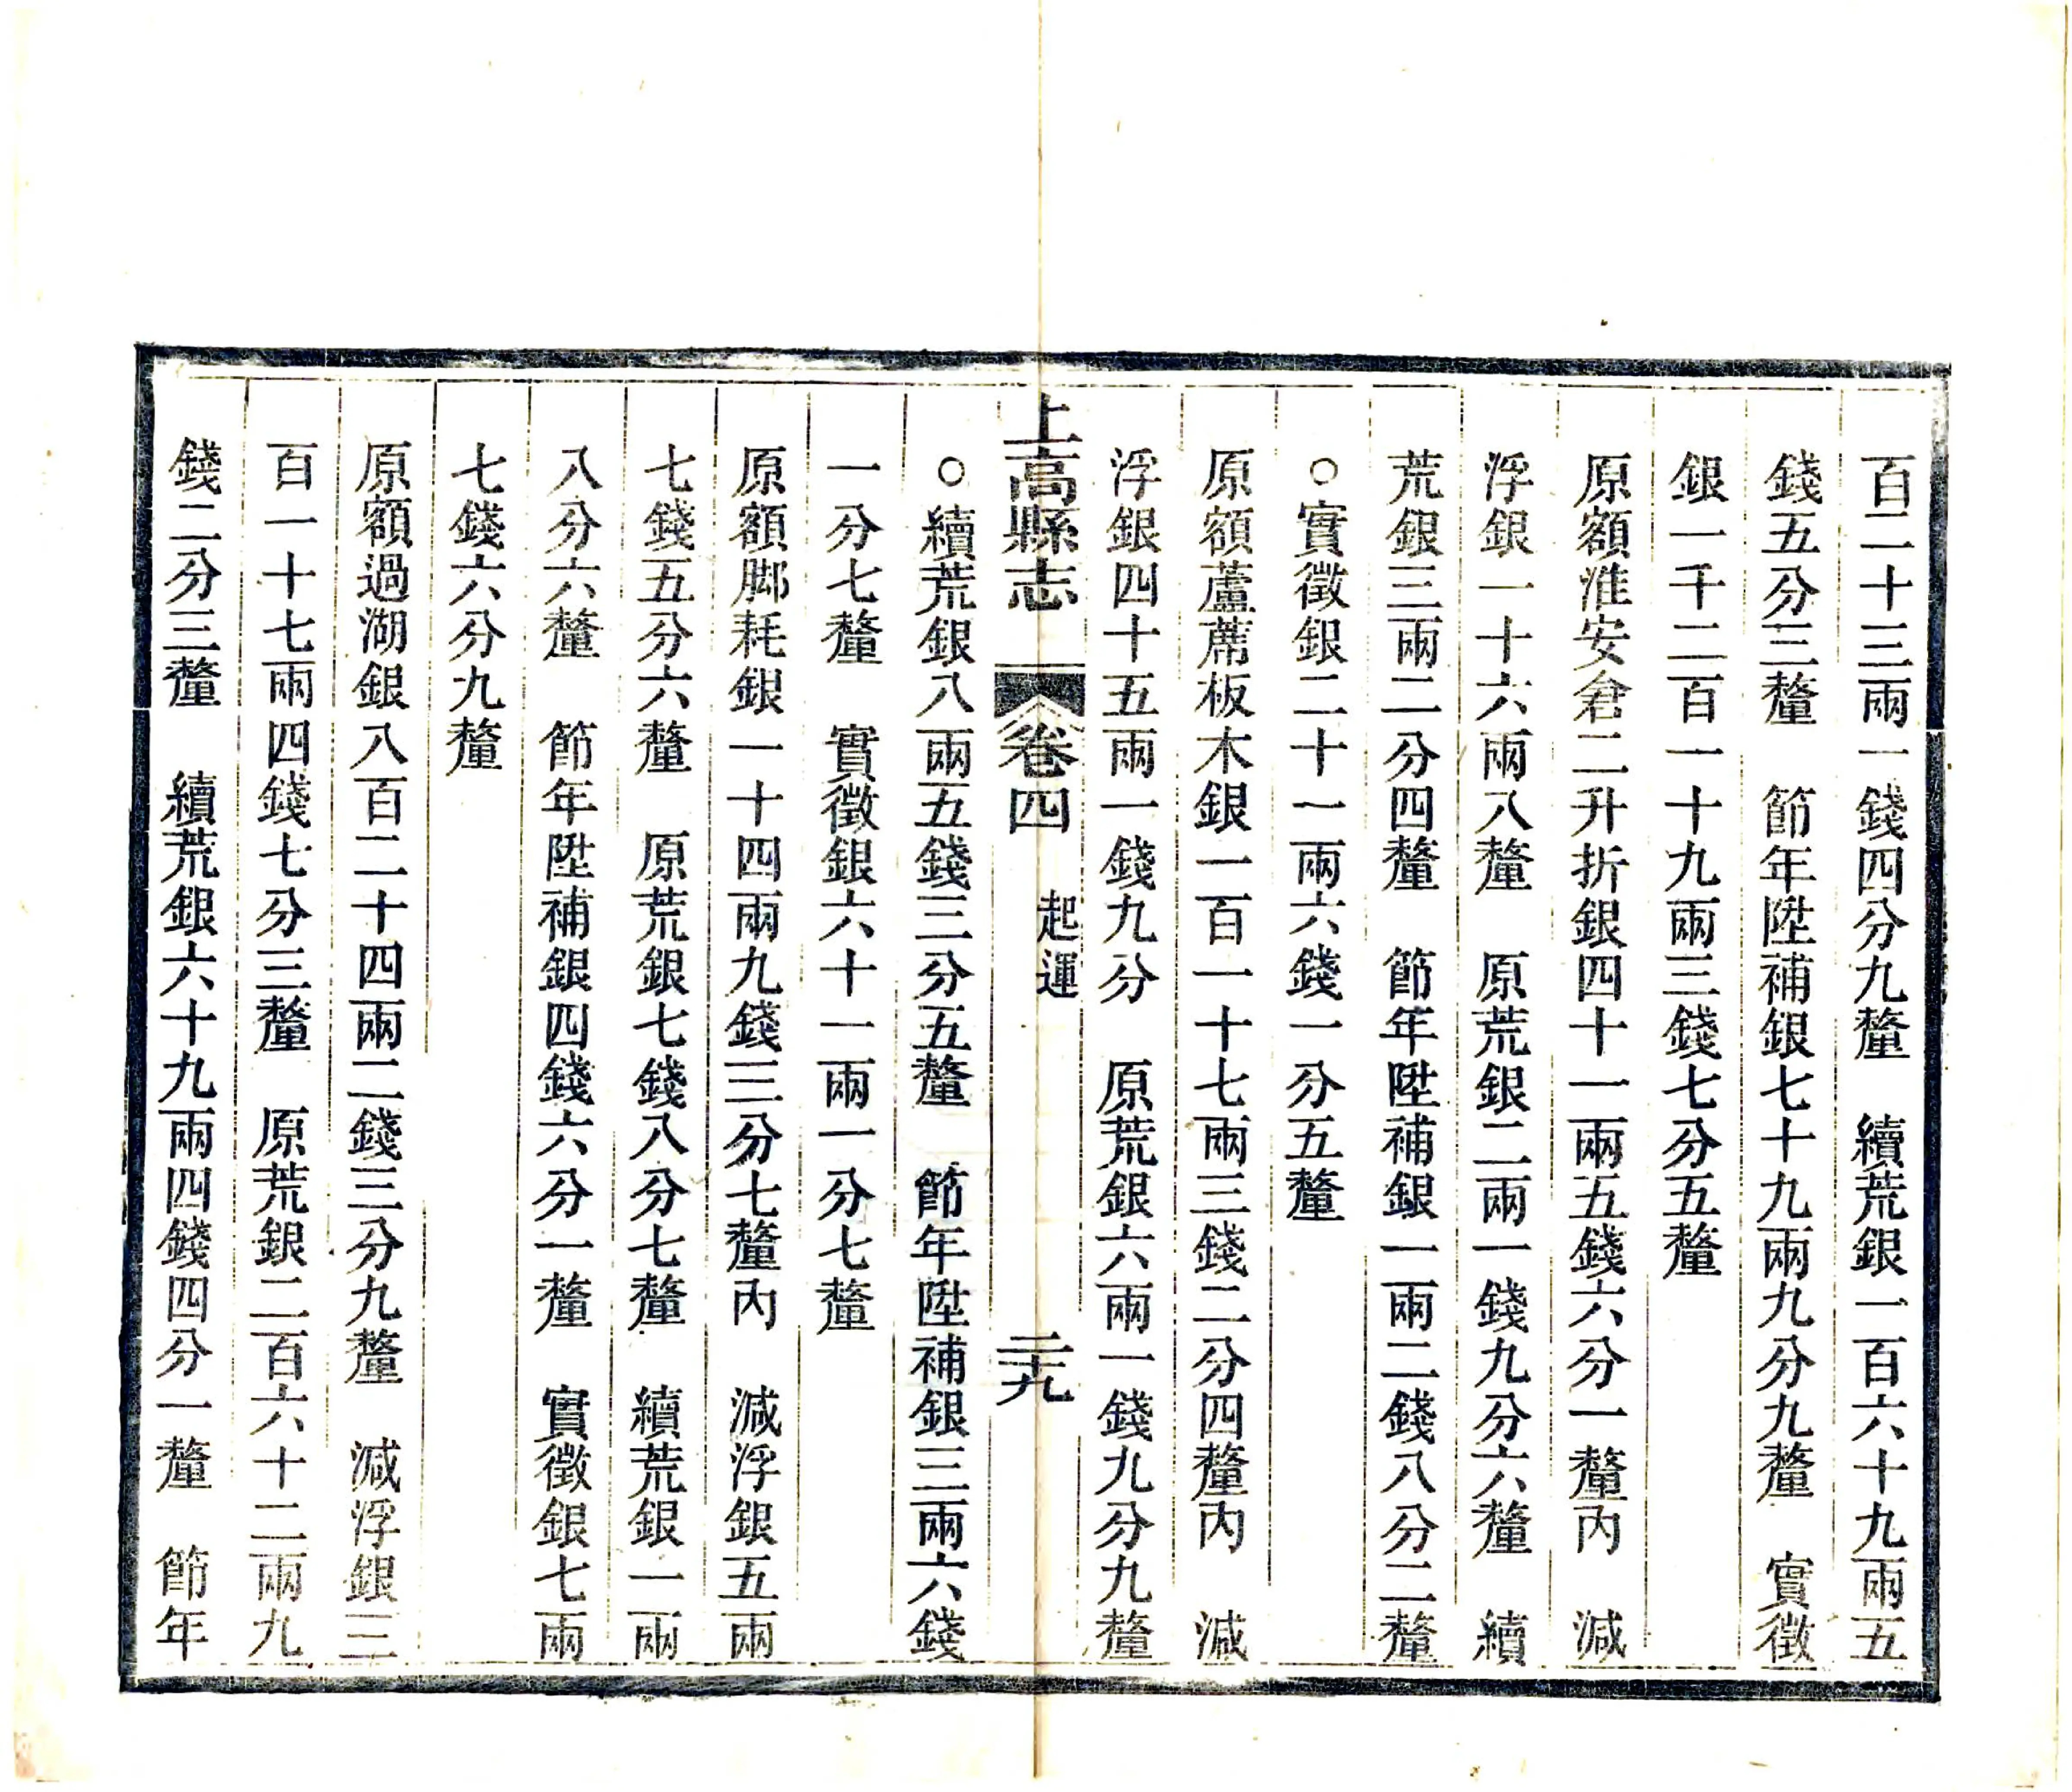 百二十三兩一錢四分九釐　續荒銀一百六十九兩五
錢五分三釐　節年陞補銀七十九兩九分九釐　實徵
銀一千二百一十九兩三錢七分五釐
原額淮安倉二升折銀四十一兩五錢六分一釐內　減
浮銀一十六兩八釐　原荒銀二兩一錢九分六釐　續
荒銀三兩二分四釐　節年陞補銀一兩二錢八分二釐
○實徵銀二十一兩六錢一分五釐
原額蘆蓆板木銀一百一十七兩三錢二分四釐內　減
浮銀四十五兩一錢九分　原荒銀六兩一錢九分九釐
上高縣志　卷四　起運　二十九
○續荒銀八兩五錢三分五釐　節年陞補銀三兩六錢
一分七釐　實徵銀六十一兩一分七釐
原額脚耗銀一十四兩九錢三分七釐內　減浮銀五兩
七錢五分六釐　原荒銀七錢八分七釐　續荒銀一兩
八分六釐　節年陞補銀四錢六分一釐　實徵銀七兩
七錢六分九釐
原額過湖銀八百二十四兩二錢三分九釐　減浮銀三
百一十七兩四錢七分三釐　原荒銀二百六十二兩九
錢二分三釐　續荒銀六十九兩四錢四分一釐　節年